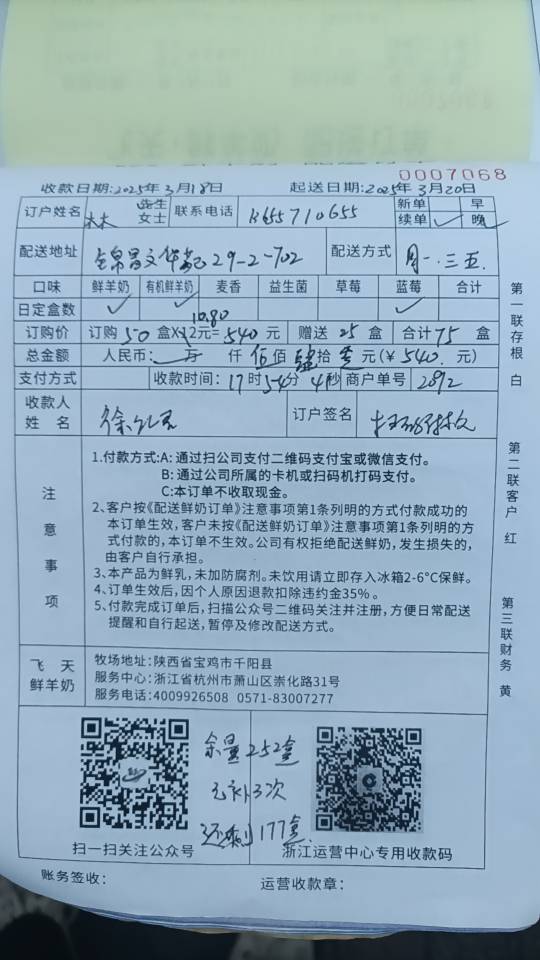 0007068
收款日期:2025年3月18日 起送日期:2025年3月20日
订户姓名 林 先生 女士 联系电话 13655710655 新单 早
续单 ✓ 晚
配送地址 29-2-702 配送方式 周一.三五.
口味 鲜羊奶 有机鲜羊奶 麦香 益生菌 草莓 蓝莓 合计
日定盒数 ✓ ✓ ✓
10.80
订购价 订购50盒X12元=540元 赠送25盒 合计75盒
总金额 人民币: 万 仟 伍佰 肆拾 元(¥540.元)
支付方式 收款时间:17时54分4秒 商户单号 2892
收款人姓名 徐 订户签名
注意事项
1.付款方式:A:通过扫公司支付二维码支付宝或微信支付。
B:通过公司所属的卡机或扫码机打码支付。
C:本订单不收取现金。
2、客户按《配送鲜奶订单》注意事项第1条列明的方式付款成功的
本订单生效,客户未按《配送鲜奶订单》注意事项第1条列明的方
式付款的,本订单不生效。公司有权拒绝配送鲜奶,发生损失的,
由客户自行承担。
3、本产品为鲜乳,未加防腐剂。未饮用请立即存入冰箱2-6°C保鲜。
4、订单生效后,因个人原因退款扣除违约金35%。
5、付款完成订单后,扫描公众号二维码关注并注册,方便日常配送
提醒和自行起送,暂停及修改配送方式。
飞天鲜羊奶
牧场地址:陕西省宝鸡市千阳县
服务中心:浙江省杭州市萧山区崇化路31号
服务电话:4009926508 0571-83007277
余量252盒
元补3次
还剩177盒
扫一扫关注公众号 浙江运营中心专用收款码
账务签收: 运营收款章:
第一联存根 白
第二联客户 红
第三联财务 黄